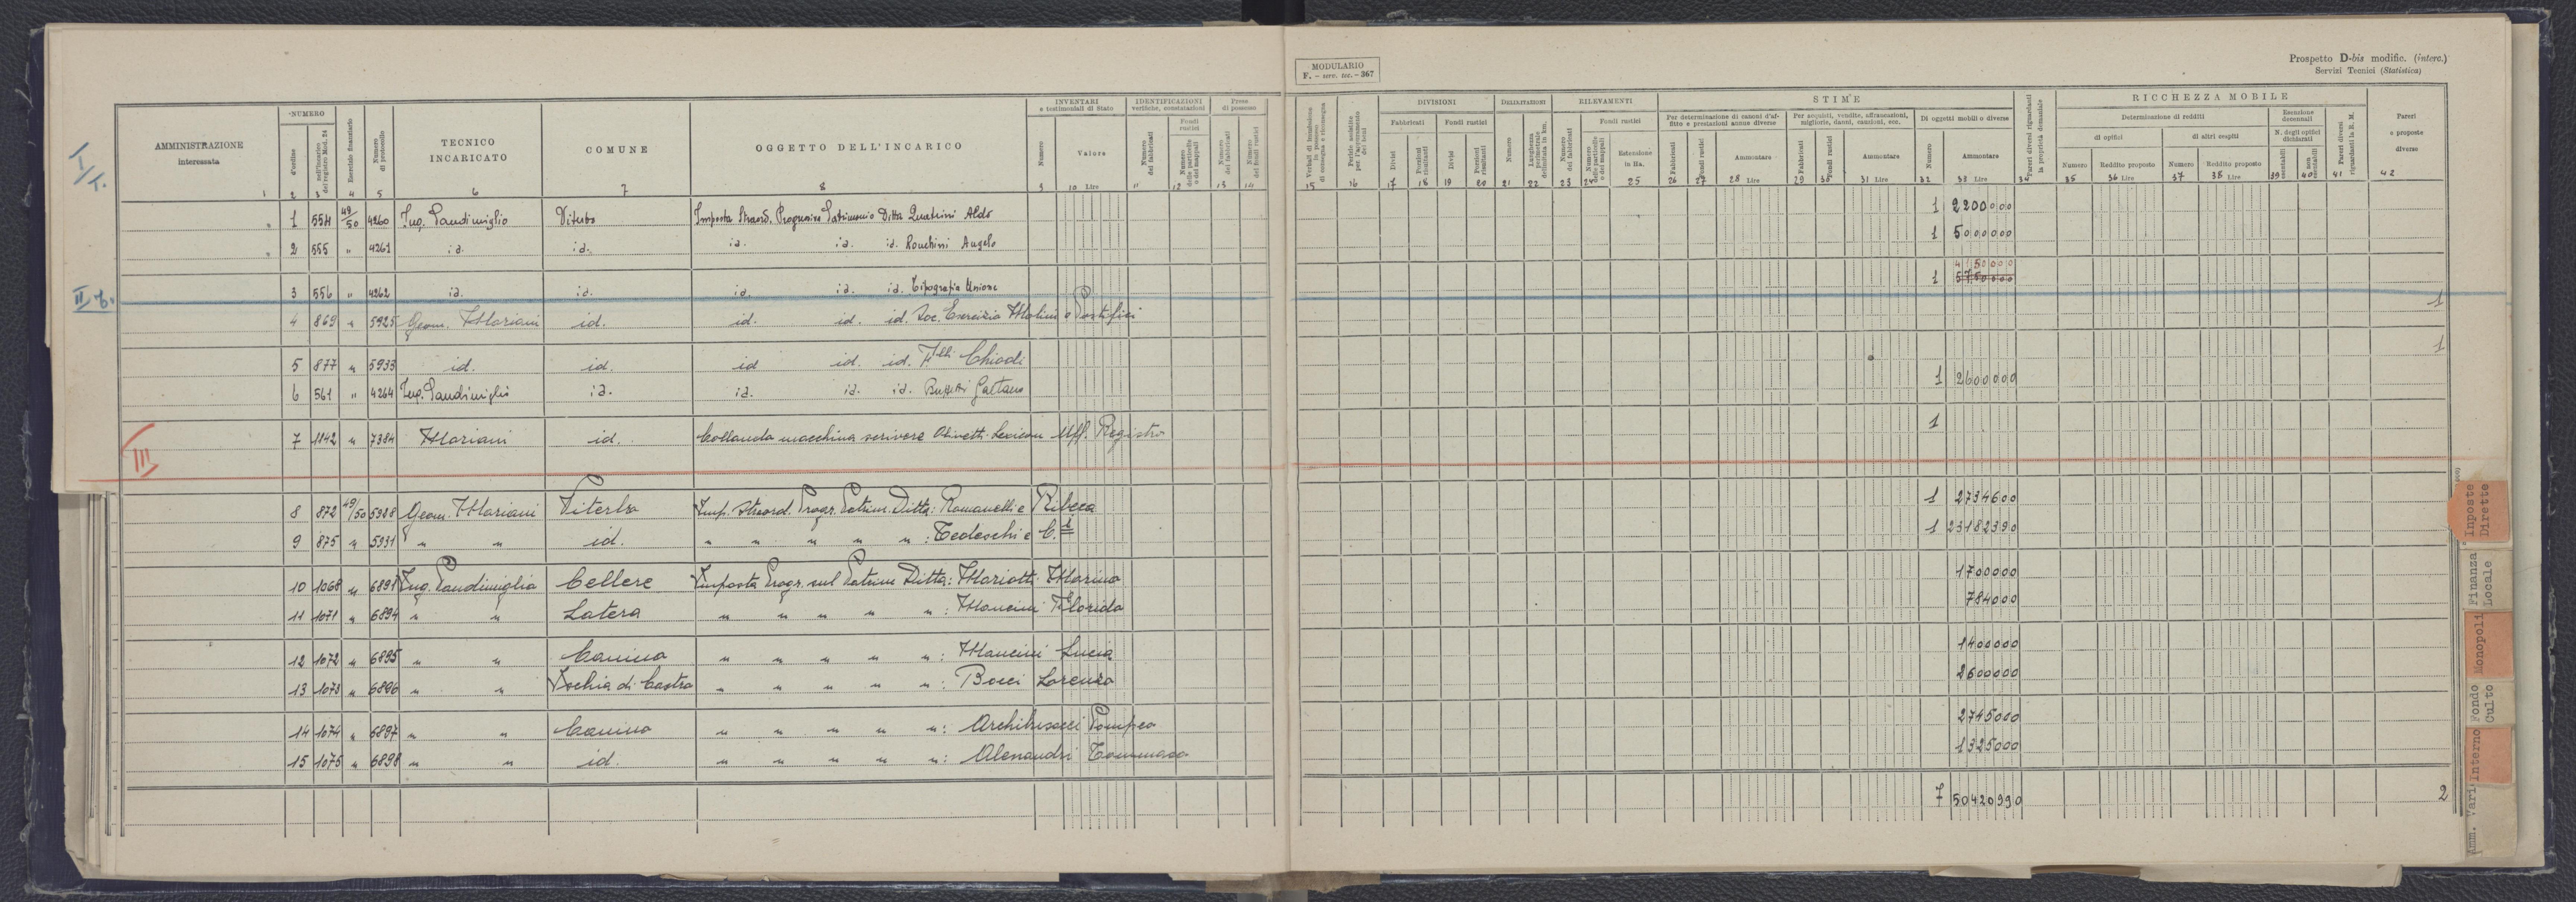 MODULARIO
F. - serv. tec. - 367
Prospetto D-bis modific. (interc.)
Servizi Tecnici (Statistica)
AMMINISTRAZIONE
interessata
NUMERO
d'ordine
nell'incarico del registro Mod. 24
Esercizio finanziario
Numero di protocollo
TECNICO
INCARICATO
COMUNE
OGGETTO DELL'INCARICO
INVENTARI
e testimoniali di Stato
Numero
Valore
IDENTIFICAZIONI
verifiche, constatazioni
Numero dei fabbricati
Fondi rustici
Numero delle particelle o dei mappali
Prese di possesso
Numero dei fabbricati
Numero dei fondi rustici
Verbali di immissione in possesso di consegna e riconsegna
DIVISIONI
Fabbricati
Fondi rustici
Divisi
Porzioni risultanti
Divisi
Porzioni risultanti
DELIMITAZIONI
Numero
Lunghezza perimetrale delimitata in km.
RILEVAMENTI
Numero dei fabbricati
Fondi rustici
Numero delle particelle o dei mappali
Estensione in Ha.
STIME
Per determinazione di canoni d'affitto e prestazioni annue diverse
Per acquisti, vendite, affrancazioni, migliorie, danni, cauzioni, ecc.
Di oggetti mobili o diverse
Fabbricati
Fondi rustici
Ammontare
Fabbricati
Fondi rustici
Ammontare
Numero
Ammontare
Pareri diversi riguardanti la proprietà demaniale
RICCHEZZA MOBILE
Determinazione di redditi
di opifici
di altri cespiti
Numero
Reddito proposto
Numero
Reddito proposto
Esenzione decennali
N. degli opifici dichiarati
esentabili
non esentabili
Pareri diversi riguardanti la R. M.
Pareri
e proposte
diverse
1 2 3 4 5 6 7 8 9 10 Lire 11 12 13 14
15 16 17 18 19 20 21 22 23 24 25 26 27 28 Lire 29 30 31 Lire 32 33 Lire 34 35 36 Lire 37 38 Lire 39 40 41 42
I/T.
" 1 554 49/50 4260 Ing. Pandimiglio Viterbo Imposta Straord. Progressiva Patrimonio Ditta Quatrini Aldo 1 2200000
" 2 555 " 4261 id. id. id. id. id. Ronchini Angelo 1 5000000
4150000
3 556 " 4262 id. id. id. id. id. Tipografia Unione 1 5750000
II
4 869 " 5925 Geom. Mariani id. id. id. id. Soc. Esercizio Molini e Pastifici 1
5 877 " 5933 id. id. id id. id. F.lli Chiodi 1
6 561 " 4264 Ing. Pandimiglio id. id. id. id. Buzzi Gaetano 1 2600000
7 1142 " 7384 Mariani id. Collaudo macchina scrivere Olivetti-Lexicon Uff. Registro 1
III
8 872 49/50 5928 Geom. Mariani Viterbo Imp. Straord. Progr. Patrim. Ditta: Romanelli e Ribeca 1 2734600
9 875 " 5931 " " id. " " " " " : Tedeschi e C. 1 23182390
10 1068 " 6891 Ing. Pandimiglio Cellere Imposta Progr. sul Patrim Ditta: Mariotti Marino 1700000
11 1071 " 6894 " " Latera " " " " " : Mancini Florida 784000
12 1072 " 6895 " " Canino " " " " " : Mancini Lucia 1400000
13 1073 " 6896 " " Ischia di Castro " " " " " : Bocci Lorenzo 2600000
14 1074 " 6897 " " Canino " " " " " : Archibusacci Pompeo 2745000
15 1075 " 6898 " " id. " " " " " : Alessandri Tommaso 1325000
7 50420990 2
Inposte Dirette
Finanza Locale
Monopoli
Fondo Culto
Interno
Amm. Varie